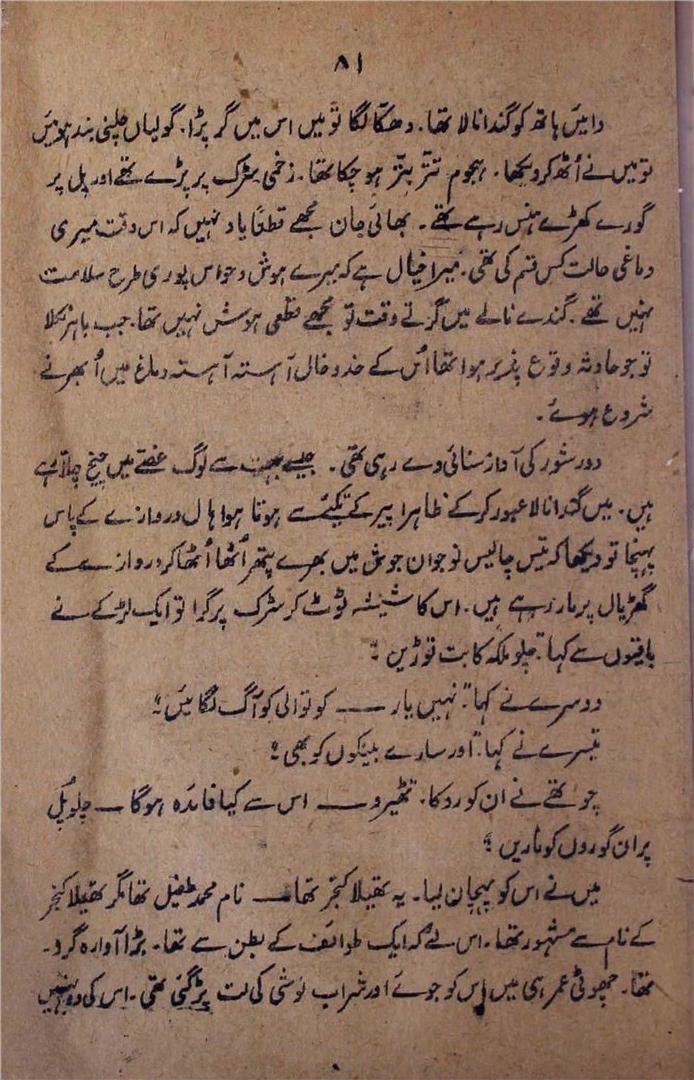 ۸۱
دائیں ہاتھ کو گندا نالا تھا۔ دھکا لگا تو میں اس میں گر پڑا۔ گولیاں چلنی بند ہوئیں
تو میں نے اُٹھ کر دیکھا۔ ہجوم تتّر بتّر ہو چکا تھا۔ زخمی سڑک پر پڑے تھے اور پل پر
گورے کھڑے ہنس رہے تھے۔ بھائی جان مجھے قطعًا یاد نہیں کہ اس وقت میری
دماغی حالت کس قسم کی تھی۔ میرا خیال ہے کہ میرے ہوش و حواس پوری طرح سلامت
نہیں تھے۔ گندے نالے میں گرتے وقت تو مجھے قطعی ہوش نہیں تھا۔ جب باہر نکلا
تو جو حادثہ وقوع پذیر ہوا تھا اُس کے خدوخال آہستہ آہستہ دماغ میں اُبھرنے
شروع ہوئے۔
دور شور کی آواز سنائی دے رہی تھی۔ جیسے بہت سے لوگ غصّے میں چیخ چلا رہے
ہیں۔ میں گندا نالا عبور کرکے ظاہرا پیر کے تکیے سے ہوتا ہوا ہال دروازے کے پاس
پہنچا تو دیکھا کہ تیس چالیس نوجوان جوش میں بھرے پتھر اُٹھا اُٹھا کر دروازے کے
گھڑیال پر مار رہے ہیں۔ اس کا شیشہ ٹوٹ کر سڑک پر گرا تو ایک لڑکے نے
باقیوں سے کہا "چلو ملکہ کا بت توڑیں"
دوسرے نے کہا "نہیں یار ــــ کوتوالی کو آگ لگائیں"
تیسرے نے کہا "اور سارے بینکوں کو بھی"
چوتھے نے ان کو روکا "ٹھیرو ــــ اس سے کیا فائدہ ہوگا ــــ چلو پُل
پر ان گوروں کو ماریں"
میں نے اس کو پہچان لیا۔ یہ تھیلا کنجر تھا ــــ نام محمد طفیل تھا مگر تھیلا کنجر
کے نام سے مشہور تھا۔ اس لئے کہ ایک طوائف کے بطن سے تھا۔ بڑا آوارہ گرد۔
تھا۔ چھوٹی عمر ہی میں اس کو جوئے اور شراب نوشی کی لت پڑ گئی تھی۔ اس کی دو بہنیں